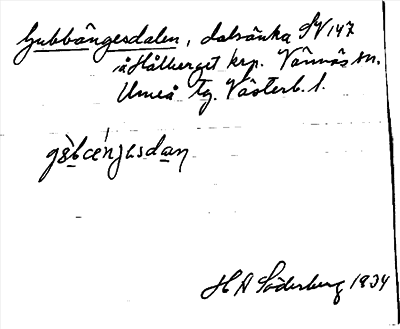 Gubbängesdalen, dalsänka SV 147
i Hålberget krp. Vännäs sn.
Umeå tg. Västerb. l.
gɞ̀bcéŋɟɛsdaŋ
H A Söderberg 1934